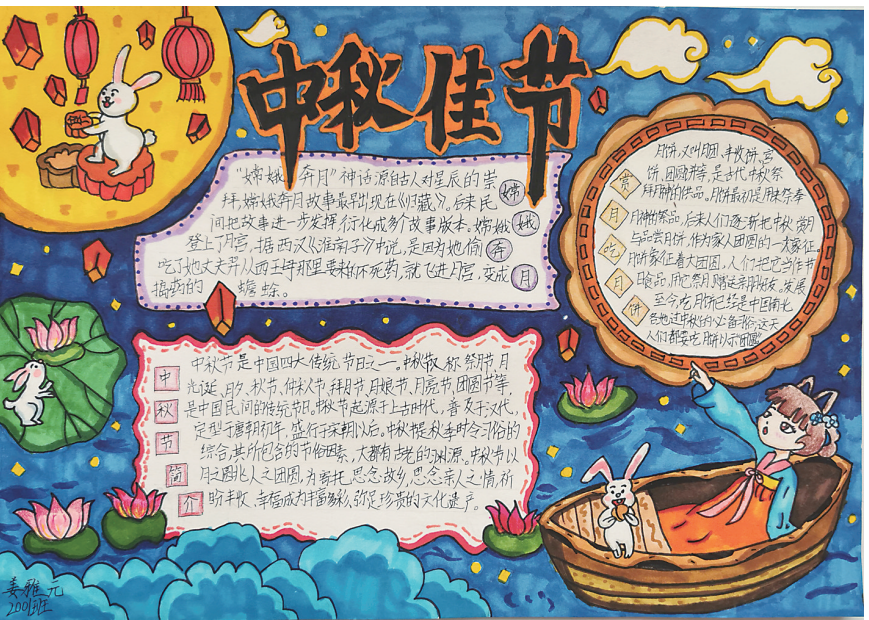 中秋佳节
嫦娥奔月
"嫦娥奔月"神话源自古人对星辰的崇
拜,嫦娥奔月故事最早出现在《归藏》。后来民
间把故事进一步发挥衍化成多个故事版本。嫦娥
登上了月宫,据西汉《淮南子》中说,是因为她偷
吃了她丈夫羿从西王母那里要来的不死药,就飞进月宫,变成
捣药的 蟾蜍。
赏月吃月饼
月饼,又叫月团、丰收饼、宫
饼、团圆饼等,是古代中秋祭
拜月神的供品。月饼最初是用来祭奉
月神的祭品,后来人们逐渐把中秋赏月
与品尝月饼,作为家人团圆的一大象征。
月饼象征着大团圆,人们把它当作节
日食品,用它祭月、赠送亲朋好友。发展
至今,吃月饼已经是中国南北
各地过中秋的必备习俗,这天
人们都要吃月饼以示"团圆"
中秋节简介
中秋节是中国四大传统节日之一。中秋节又称祭月节、月
光诞、月夕、秋节、仲秋节、拜月节、月娘节、月亮节、团圆节等
是中国民间的传统节日。中秋节起源于上古时代,普及于汉代,
定型于唐朝初年,盛行于宋朝以后。中秋节是秋季时令习俗的
综合,其所包含的节俗因素,大都有古老的渊源。中秋节以
月之圆兆人之团圆,为寄托思念故乡,思念亲人之情,祈
盼丰收、幸福,成为丰富多彩、弥足珍贵的文化遗产。
姜雅元
2001班